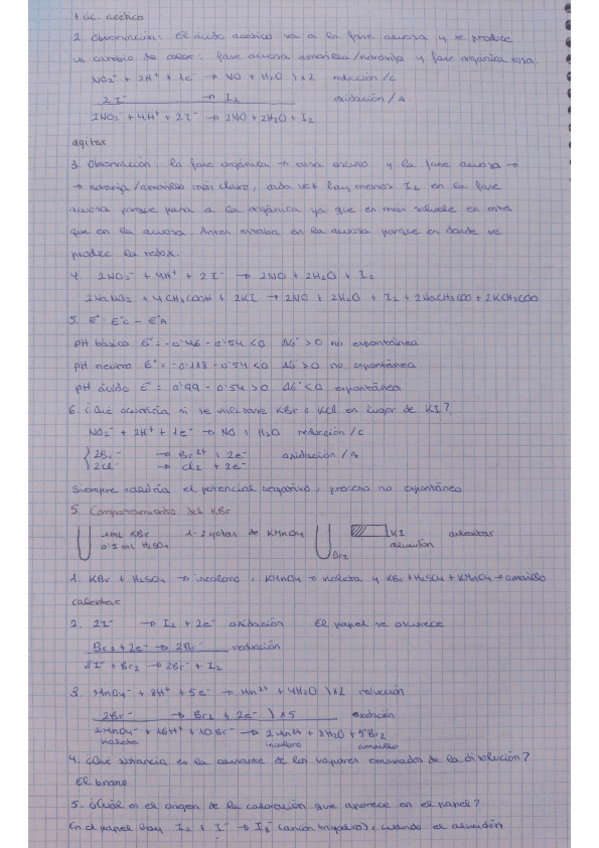 + ác. acético
2. Observación: El ácido acético va a la fase acuosa y se produce
un cambio de color: fase acuosa amarillea/naranja y fase orgánica rosa.
NO₂⁻ + 2H⁺ + 1e⁻ → NO + H₂O ) x2 reducción / C
2I⁻ → I₂ oxidación / A
2NO₂⁻ + 4H⁺ + 2I⁻ → 2NO + 2H₂O + I₂
agitar
3. Observación: la fase orgánica → rosa oscuro y la fase acuosa →
→ naranja/amarillo más claro, cada vez hay menos I₂ en la fase
acuosa porque pasa a la orgánica ya que es más soluble en esta
que en la acuosa. Antes estaba en la acuosa porque es donde se
produce la redox.
4. 2NO₂⁻ + 4H⁺ + 2I⁻ → 2NO + 2H₂O + I₂
2NaNO₂ + 4CH₃COOH + 2KI → 2NO + 2H₂O + I₂ + 2NaCH₃COO + 2KCH₃COO
5. E° = E°C − E°A
pH básico E° = -0'46 - 0'54 < 0 ΔG° > 0 no espontánea
pH neutro E° = -0'118 - 0'54 < 0 ΔG° > 0 no espontánea
pH ácido E° = 0'99 - 0'54 > 0 ΔG° < 0 espontánea
6. ¿Qué ocurriría si se utilizase KBr o KCl en lugar de KI?
NO₂⁻ + 2H⁺ + 1e⁻ → NO + H₂O reducción / C
{ 2Br⁻ → Br²⁺ + 2e⁻ oxidación / A
2Cl⁻ → Cl₂ + 2e⁻
Siempre saldría el potencial negativo, proceso no espontáneo
5. Comportamiento del KBr
1mL KBr 1-2 gotas de KMnO₄ KI calentar
0'5 mL H₂SO₄ Br₂ almidón
1. KBr + H₂SO₄ → incoloro, KMnO₄ → violeta y KBr + H₂SO₄ + KMnO₄ → amarillo
calentar
2. 2I⁻ → I₂ + 2e⁻ oxidación El papel se oscurece
Br₂ + 2e⁻ → 2Br⁻ reducción
2I⁻ + Br₂ → 2Br⁻ + I₂
3. MnO₄⁻ + 8H⁺ + 5e⁻ → Mn²⁺ + 4H₂O ) x2 reducción
2Br⁻ → Br₂ + 2e⁻ ) x5 oxidación
2MnO₄⁻ + 16H⁺ + 10Br⁻ → 2Mn²⁺ + 8H₂O + 5Br₂
violeta incoloro amarillo
4. ¿Qué sustancia es la causante de los vapores emanados de la disolución?
El bromo
5. ¿Cuál es el origen de la coloración que aparece en el papel?
En el papel hay I₂ + I⁻ → I₃⁻ (anión triyoduro), cuando el almidón